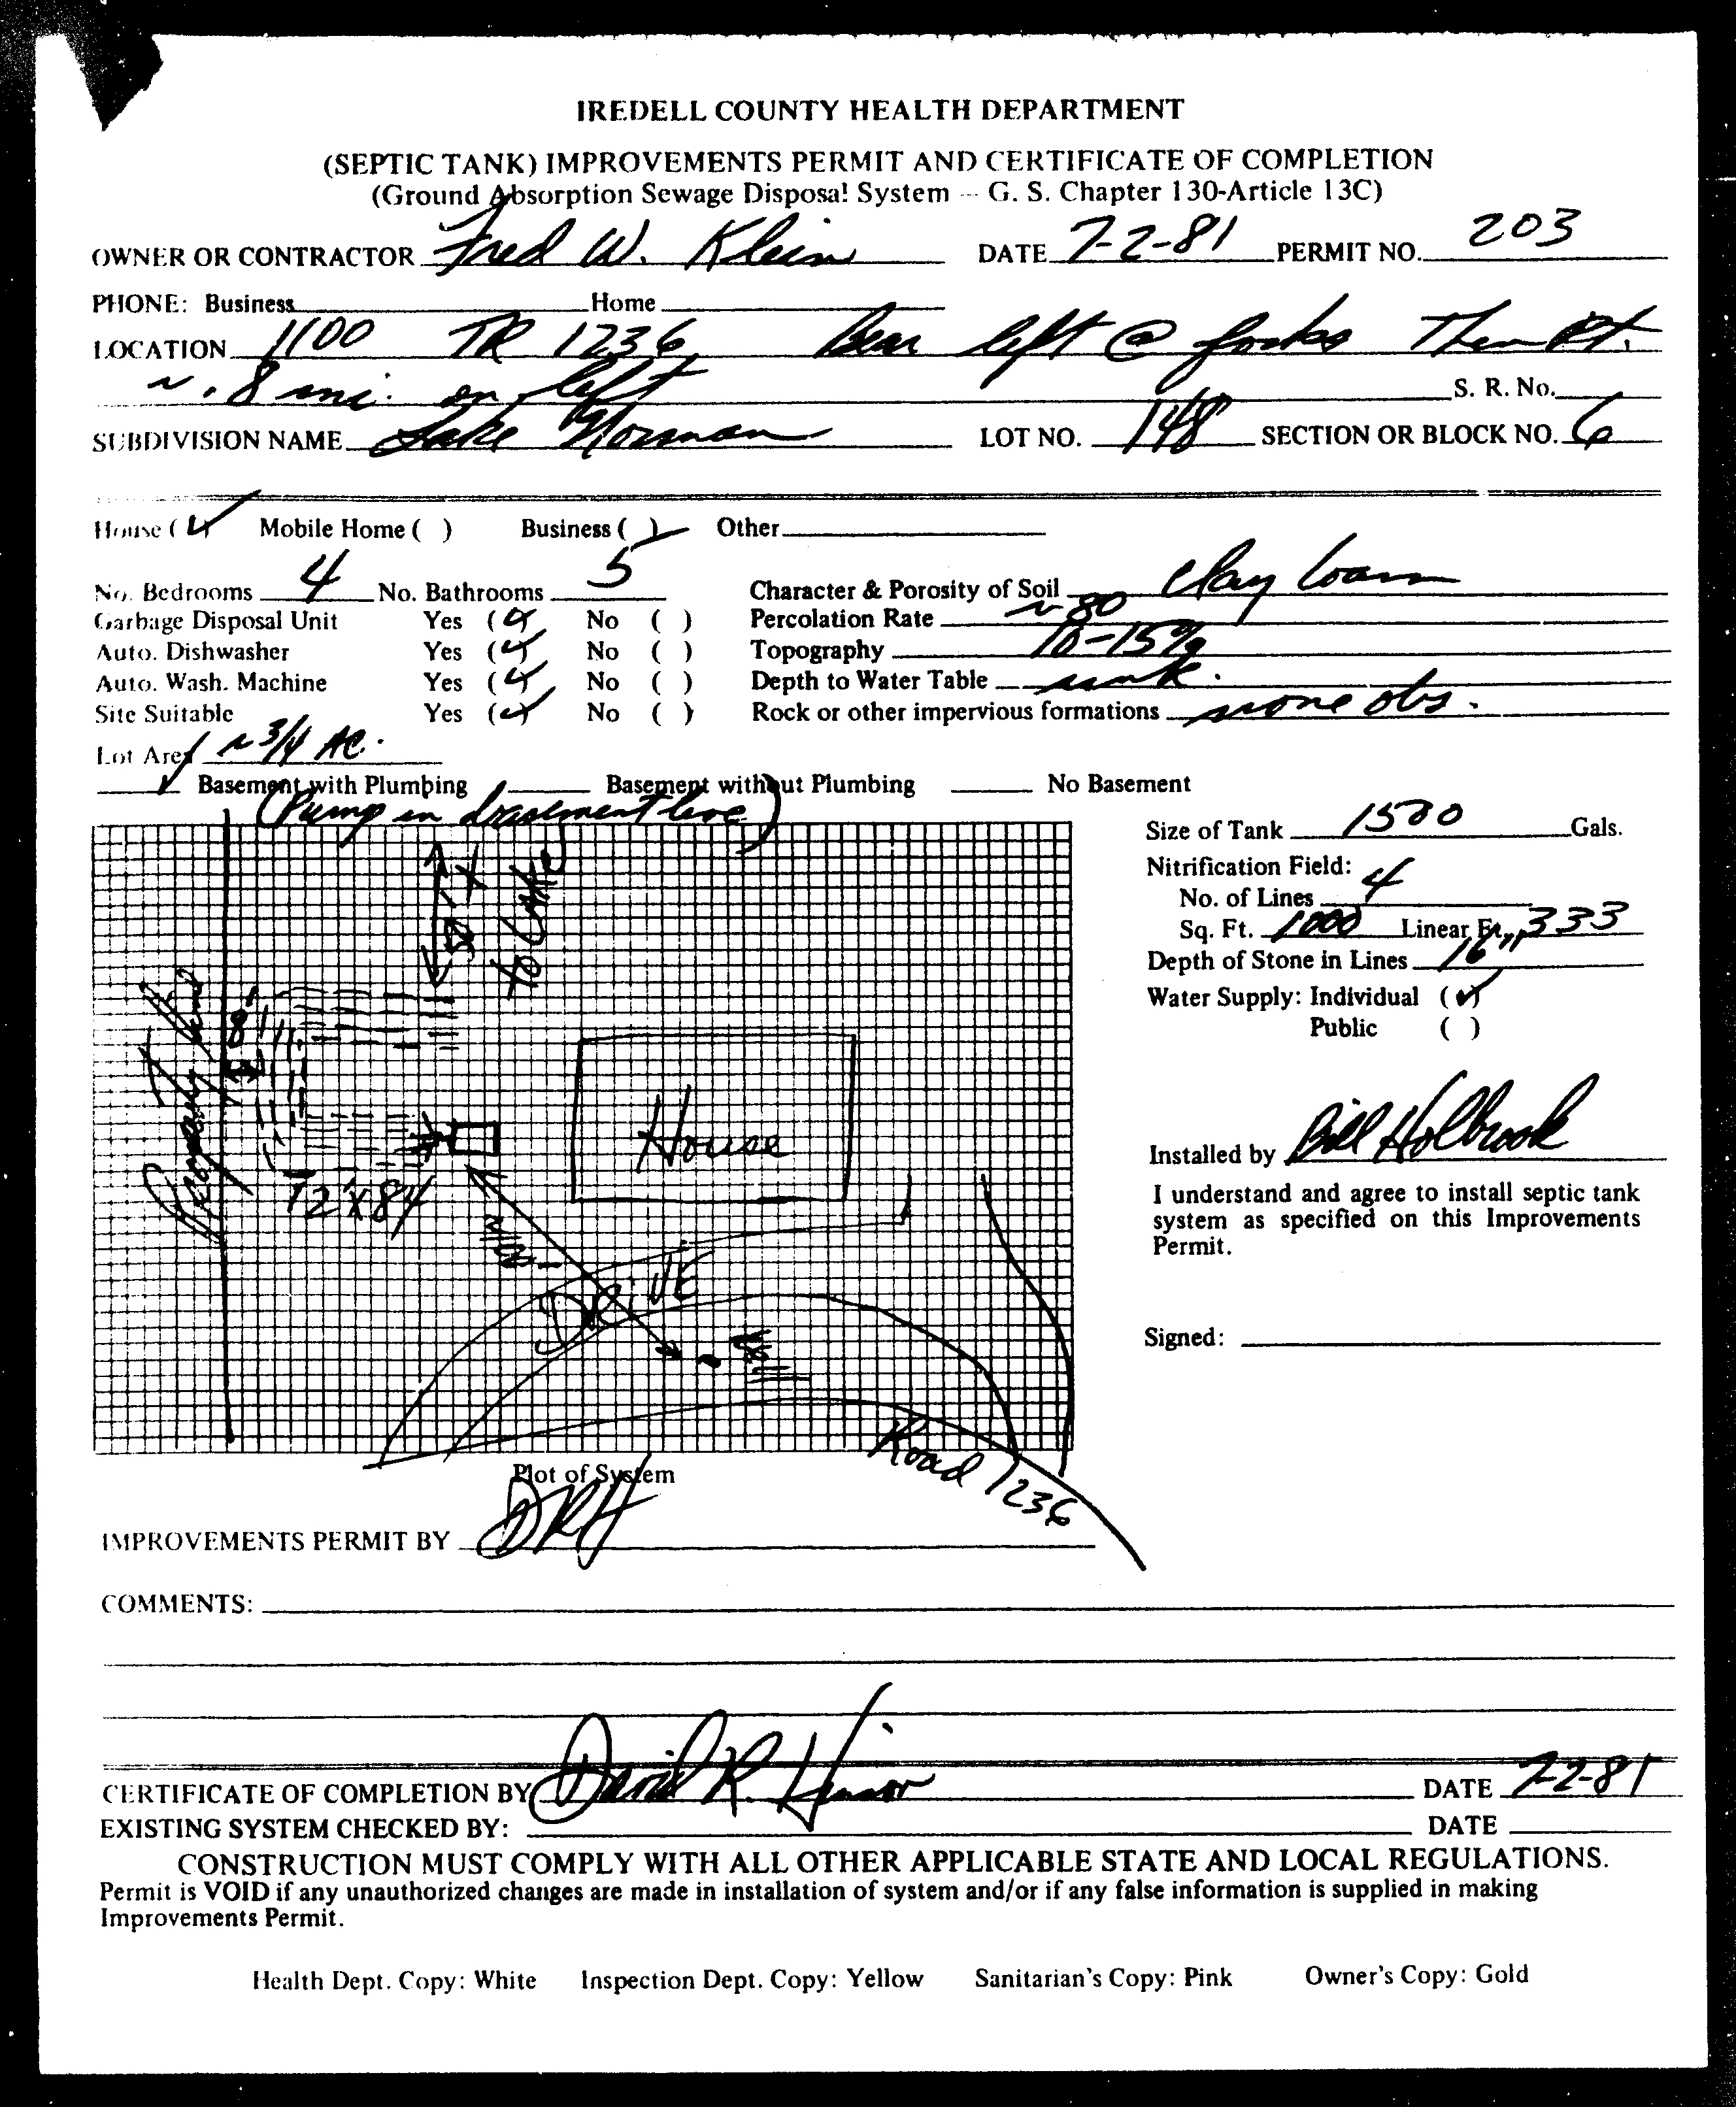 IREDELL COUNTY HEALTH DEPARTMENT
(SEPTIC TANK) IMPROVEMENTS PERMIT AND CERTIFICATE OF COMPLETION
(Ground Absorption Sewage Disposal System -- G. S. Chapter 130-Article 13C)
OWNER OR CONTRACTOR Fred W. Klein DATE 7-2-81 PERMIT NO. 203
PHONE: Business Home
LOCATION 1100 TR 1236 Bear left @ forks Then Rt.
~ .8 mi. on left S. R. No.
SUBDIVISION NAME Lake Norman LOT NO. 148 SECTION OR BLOCK NO. 6
House (✓) Mobile Home ( ) Business ( ) Other
No. Bedrooms 4 No. Bathrooms 5 Character & Porosity of Soil Clay Loam
Garbage Disposal Unit Yes (✓) No ( ) Percolation Rate ~80
Auto. Dishwasher Yes (✓) No ( ) Topography 10-15%
Auto. Wash. Machine Yes (✓) No ( ) Depth to Water Table unk.
Site Suitable Yes (✓) No ( ) Rock or other impervious formations none obs.
Lot Area ~3/4 AC.
✓ Basement with Plumbing Basement without Plumbing No Basement
(Pump in basement)
Size of Tank 1500 Gals.
Nitrification Field:
No. of Lines 4
Sq. Ft. 1000 Linear Ft. 333
Depth of Stone in Lines 16"
Water Supply: Individual (✓)
Public ( )
to Lake
8'
Property Line
House
12"x84
Drive
Well
Road 1236
Installed by Bill Holbrook
I understand and agree to install septic tank
system as specified on this Improvements
Permit.
Signed:
Plot of System
IMPROVEMENTS PERMIT BY DRH
COMMENTS:
CERTIFICATE OF COMPLETION BY David R. Hinson DATE 7-2-81
EXISTING SYSTEM CHECKED BY: DATE
CONSTRUCTION MUST COMPLY WITH ALL OTHER APPLICABLE STATE AND LOCAL REGULATIONS.
Permit is VOID if any unauthorized changes are made in installation of system and/or if any false information is supplied in making
Improvements Permit.
Health Dept. Copy: White Inspection Dept. Copy: Yellow Sanitarian's Copy: Pink Owner's Copy: Gold